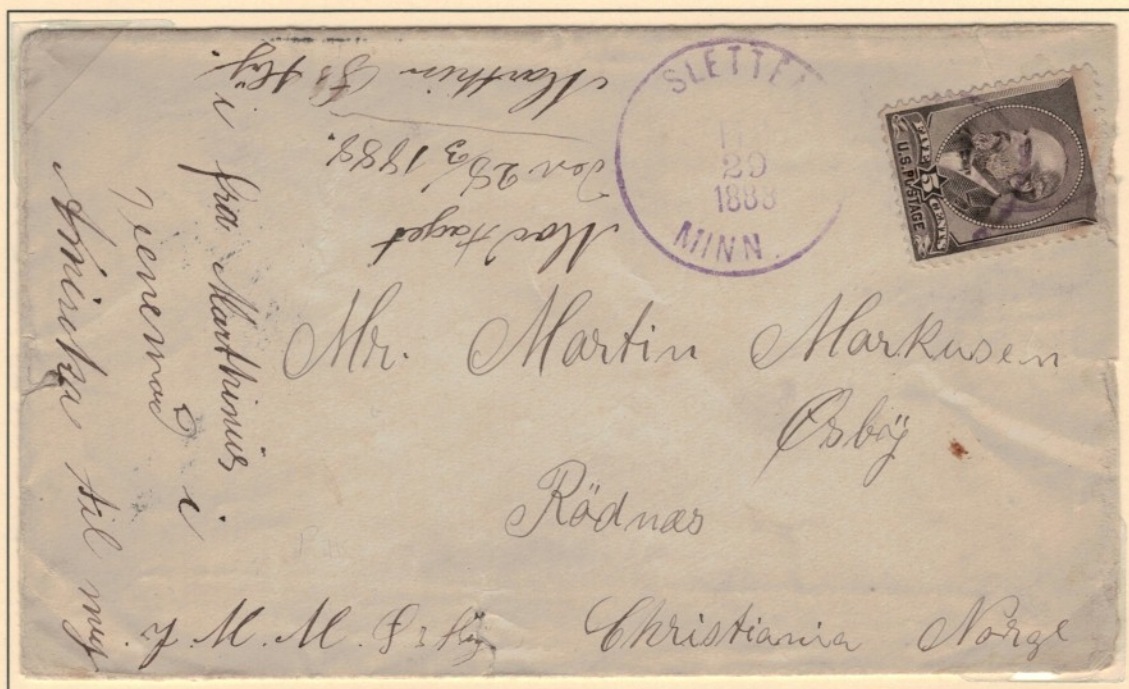 SLETTE
29
1888
MINN.
FIVE 5 CENTS
U.S. POSTAGE
Mr. Martin Markusen
Øsbÿ
Rödnæs
Christiania Norge
Modtaget
Den 28/3 1888.
Marthin
fra Marthinus
i
Amerika til mig
M. M.